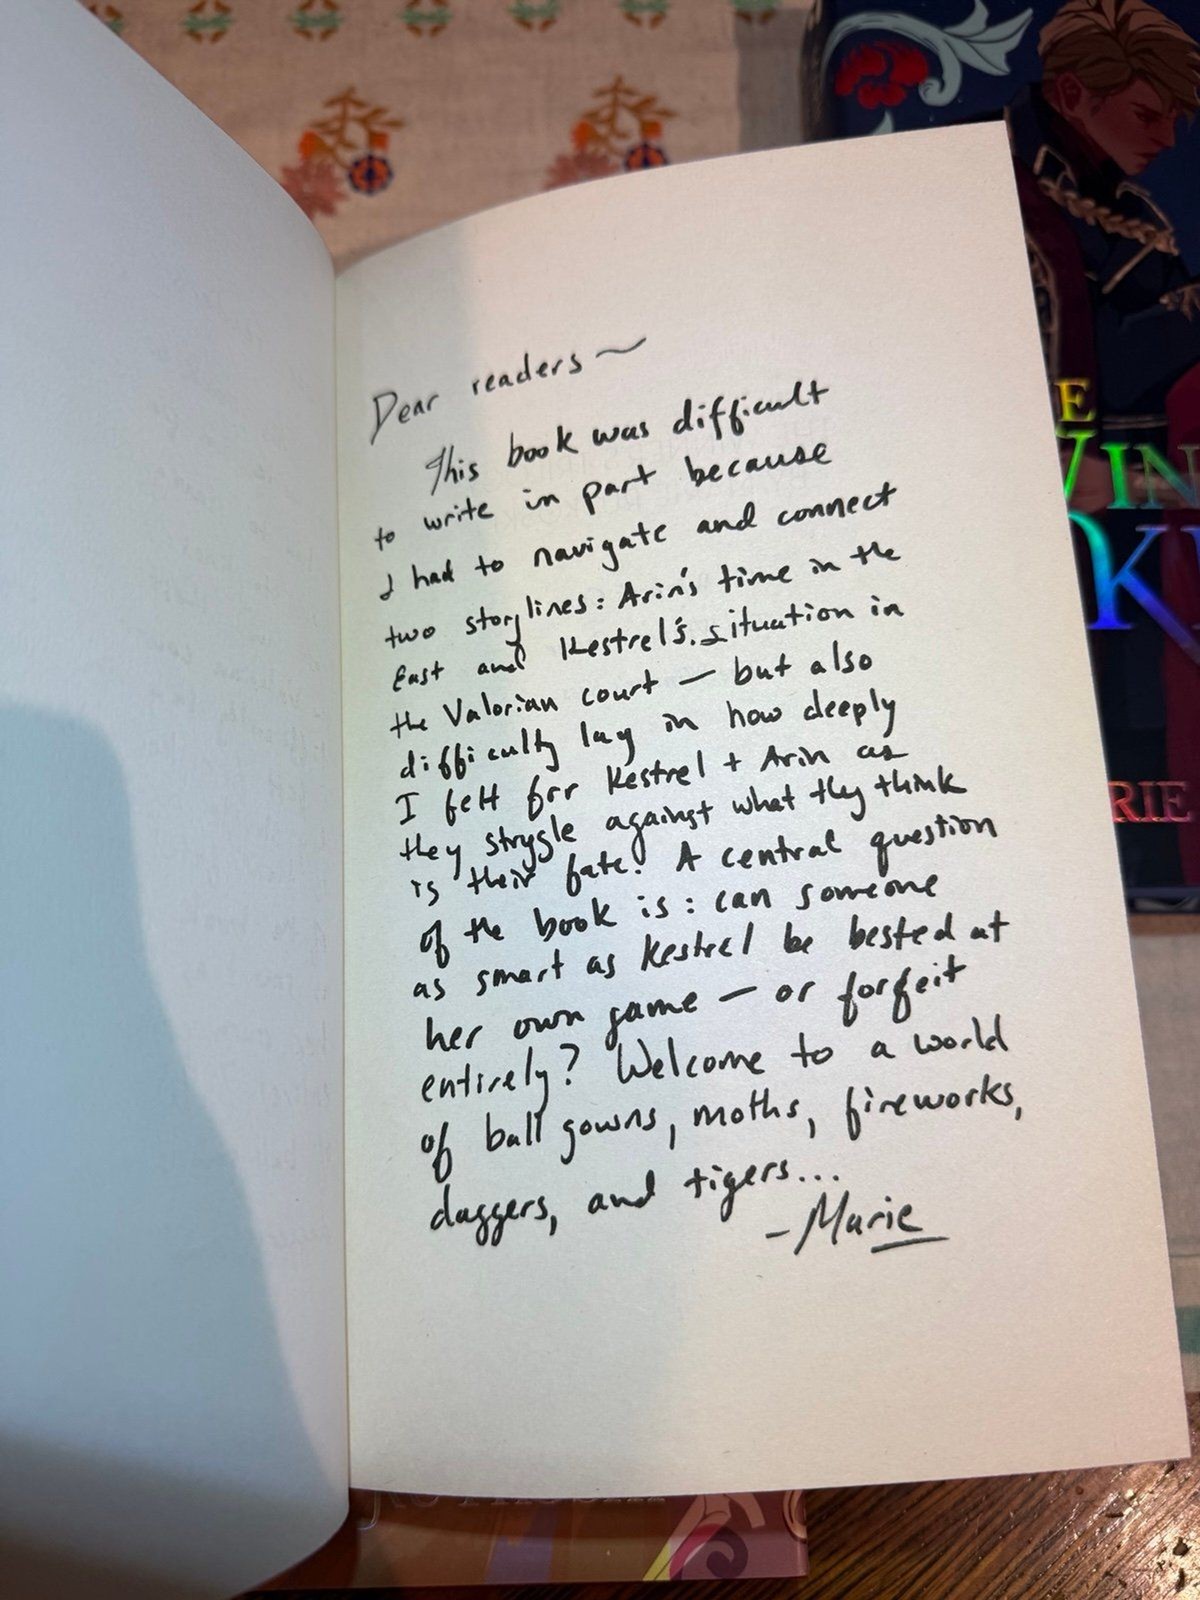 Dear readers ~
This book was difficult
to write in part because
I had to navigate and connect
two storylines: Arin's time in the
East and Kestrel's situation in
the Valorian court — but also
difficulty lay in how deeply
I felt for Kestrel + Arin as
they struggle against what they think
is their fate. A central question
of the book is: can someone
as smart as Kestrel be bested at
her own game — or forfeit
entirely? Welcome to a world
of ball gowns, moths, fireworks,
daggers, and tigers...
- Marie
E
WIN
K
RIE